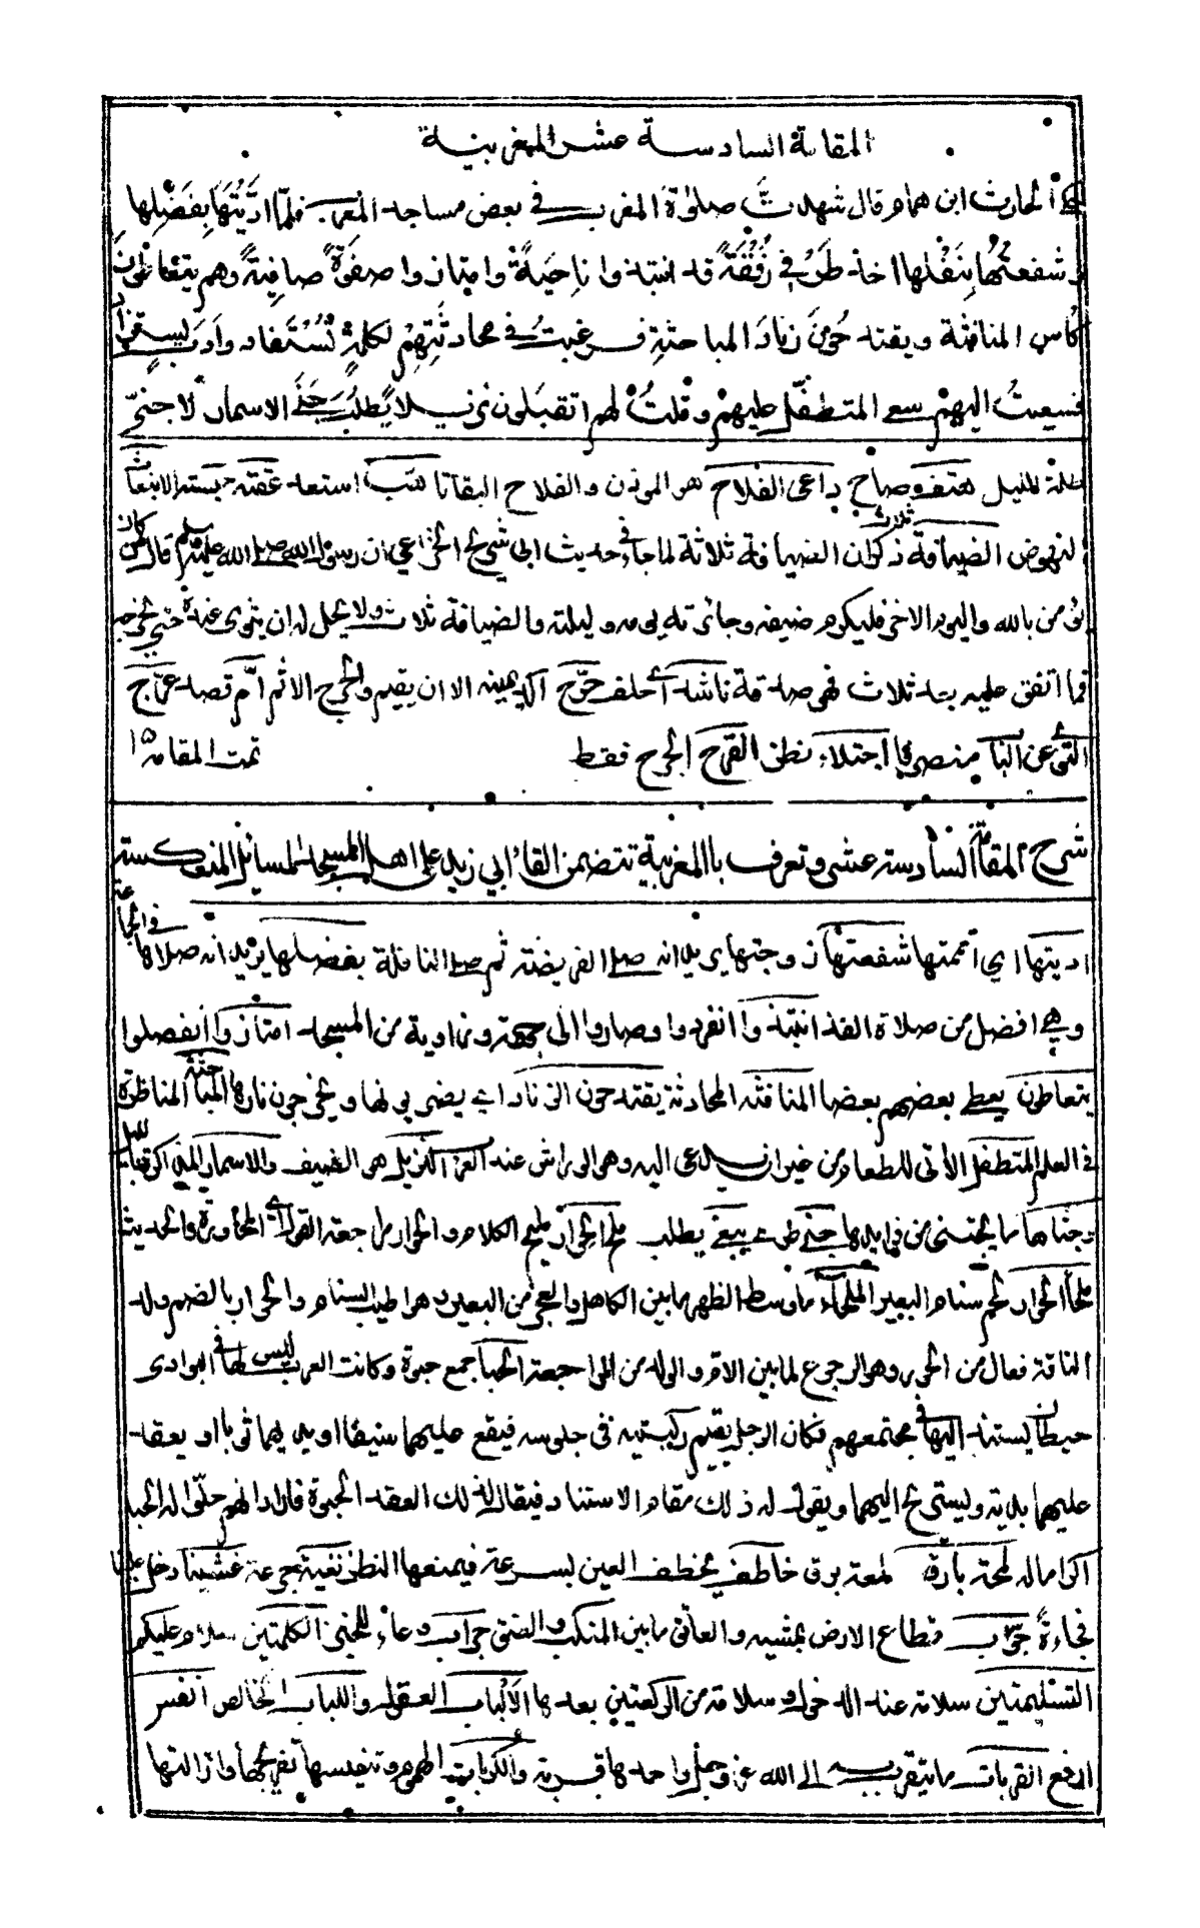 المقامة السادسة عشر المغربية
حكى الحارث ابن همام قال شهدت صلوٰة المغرب في بعض مساجد المغرب فلمّا ادّيتُهَا بِفَضْلِها
وشفعتُها بِنَفْلها اخذ طرفي رُفْقَةً قد انتبذوا ناحِيَةً وامتازوا صفوةً صافيةً وهم يتعاطون
كأس المنافثة ويقتدحون زِنَادَ المباحثةِ فرغبتُ في محادثتِهِمْ لكلمةٍ تُسْتَفاد وادبٍ يستزاد
فسعيتُ اليهم سعي المتطفّل عليهم وقلتُ لهم اتقبَلون نزيلا يَطلُبُ جَنَى الاسمار لا جنيّ
ظلمة الليل هتف وصاح داعى الفلاح هو الموذن والفلاح البقا تاهّب استعد عقلته حبسته الانبعاث
النهوض الضيافة ثلاث ذكر ان الضيافة ثلاثة لما جاء في حديث ابي شريح الخزاعي ان رسول الله صلى الله عليه وسلم قال من كان
يؤمن بالله واليوم الاخر فليكرم ضيفه وجائزته يوم وليلة والضيافة ثلاث ولا يحل له ان يثوى عنده حتى يخرجه
فما انفق عليه بعد ثلاث فهو صدقة ناشد اي حلف حرّج اكد يمينه الا ان يقيم والحرج الاثم امّ قصد عرّاج
التى عن الباب منصرفا اجتلاء نظر القرح الجرح فقط تمت المقامه ١٥
شرح المقامة السادسة عشر وتعرف بالمغربية تتضمن القاء ابي زيد على اهل المسجد المسائل المنعكسة
اديتها اي اتممتها شفعتها زوجتها يريد انه صلى الفريضة ثم صلى النافلة بفضلها يريد انه صلاها في الجماعة
وهي افضل من صلاة الفذ انتبذوا انفردوا وصاروا الى جهة وزاوية من المسجد امتازوا انفصلوا
يتعاطون يعطى بعضهم بعضا المنافثه المحادثة يقتدحون الزناد اي يضربونها ويخرجون نارها المباحثة المناظرة
في العلم المتطفل الآتى للطعام من غير ان يدعى اليه وهو الوارش عند العرب النزيل هو الضيف والاسمار
وجناها ما يجتنى من فوايدها يبغى يطلب ملح الحوار مليح الكلام والحوار مراجعة القول اي المحاورة والحديث
ملحا الحوار لحم سنام البعير الملحاء ما وسط الظهر ما بين الكاهل والعجز من البعير وهو اطيب السنام والحوار بالضم ولد
الناقة فعال من الحور وهو الرجوع لما بين الام والوله من المراجعة الحبا جمع حبوة وكانت العرب ليس لها في البوادى
حيطان يستند اليها في مجتمعهم فكان الرجل يقيم ركبتيه في جلوسه فيقع عليهما سيفا او يديهما ثوبا او يعقد
عليهما يديه ويستريح اليهما ويقوم له ذلك مقام الاستناد فيقال لذلك العقد الحبوة فاراد انهم حلّوا له الحبا
اكراما له لمحة بارق لمعة برق خاطف يخطف العين بسرعة فيمنعها النظر نغبة جرعة غشينا دخل علينا
فجاءةً جوّاب قطاع الارض بمشيه والعاتق ما بين المنكب والعنق جراب وعاء للخبز الكلمتين سلام عليكم
التسليمتين سلامه عند الدخول وسلامه من الركعتين بعدها الالباب العقول واللباب الخالص انفس
ارفع القربات ما يتقرب به الى الله عز وجل واحدها قربة والكربات الهموم وتنفيسها تفريجها وازالتها